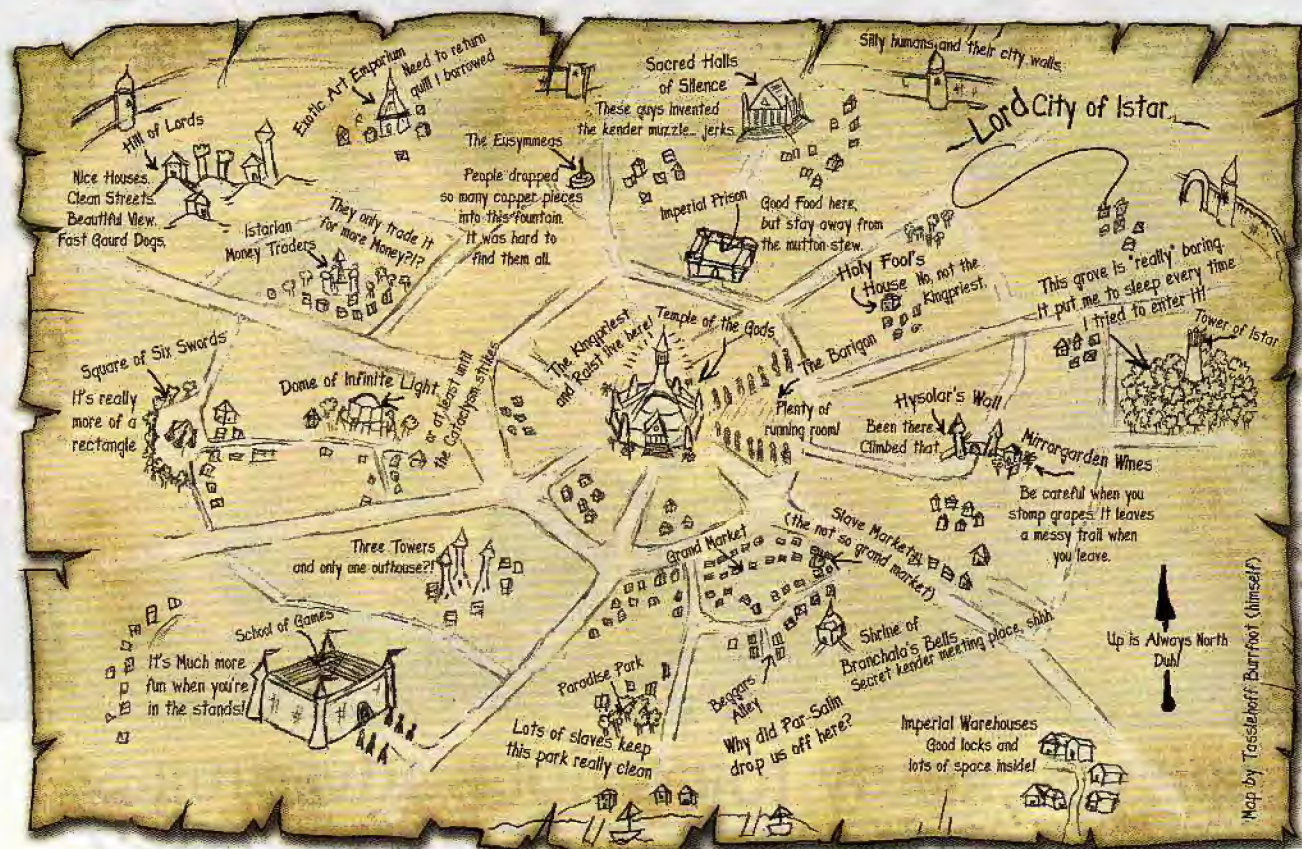 Silly humans and their city walls.
Lord City of Istar
Exotic Art Emporium
Need to return
quill I borrowed
Sacred Halls
of Silence
These guys invented
the kender muzzle... jerks.
Hill of Lords
Nice Houses.
Clean Streets.
Beautiful View.
Fast Gaurd Dogs.
The Eusymmeas
People dropped
so many copper pieces
into this fountain.
It was hard to
find them all.
Imperial Prison
Good Food here,
but stay away from
the mutton stew.
Istarian
Money Traders
They only trade it
for more Money?!?
Holy Fool's
House
No, not the
Kingpriest.
This grove is "really" boring.
It put me to sleep every time
I tried to enter it!
Tower of Istar
Square of Six Swords
It's really
more of a
rectangle
Dome of Infinite Light
or at least until
the Cataclysm strikes
The Kingpriest
and Raist live here!
Temple of the Gods
The Barigon
Plenty of
running room!
Hysolar's Wall
Been there
Climbed that
Mirrorgarden Wines
Be careful when you
stomp grapes. It leaves
a messy trail when
you leave.
Three Towers
and only one outhouse?!
Grand Market
Slave Market
(the not so grand market)
School of Games
It's Much more
fun when you're
in the stands!
Paradise Park
Lots of slaves keep
this park really clean
Beggars
Alley
Why did Par-Salin
drop us off here?
Shrine of
Branchala's Bells
Secret kender meeting place, shhh
Up is Always North
Duh!
Imperial Warehouses
Good locks and
lots of space inside!
Map by Tasslehoff Burrfoot (himself)